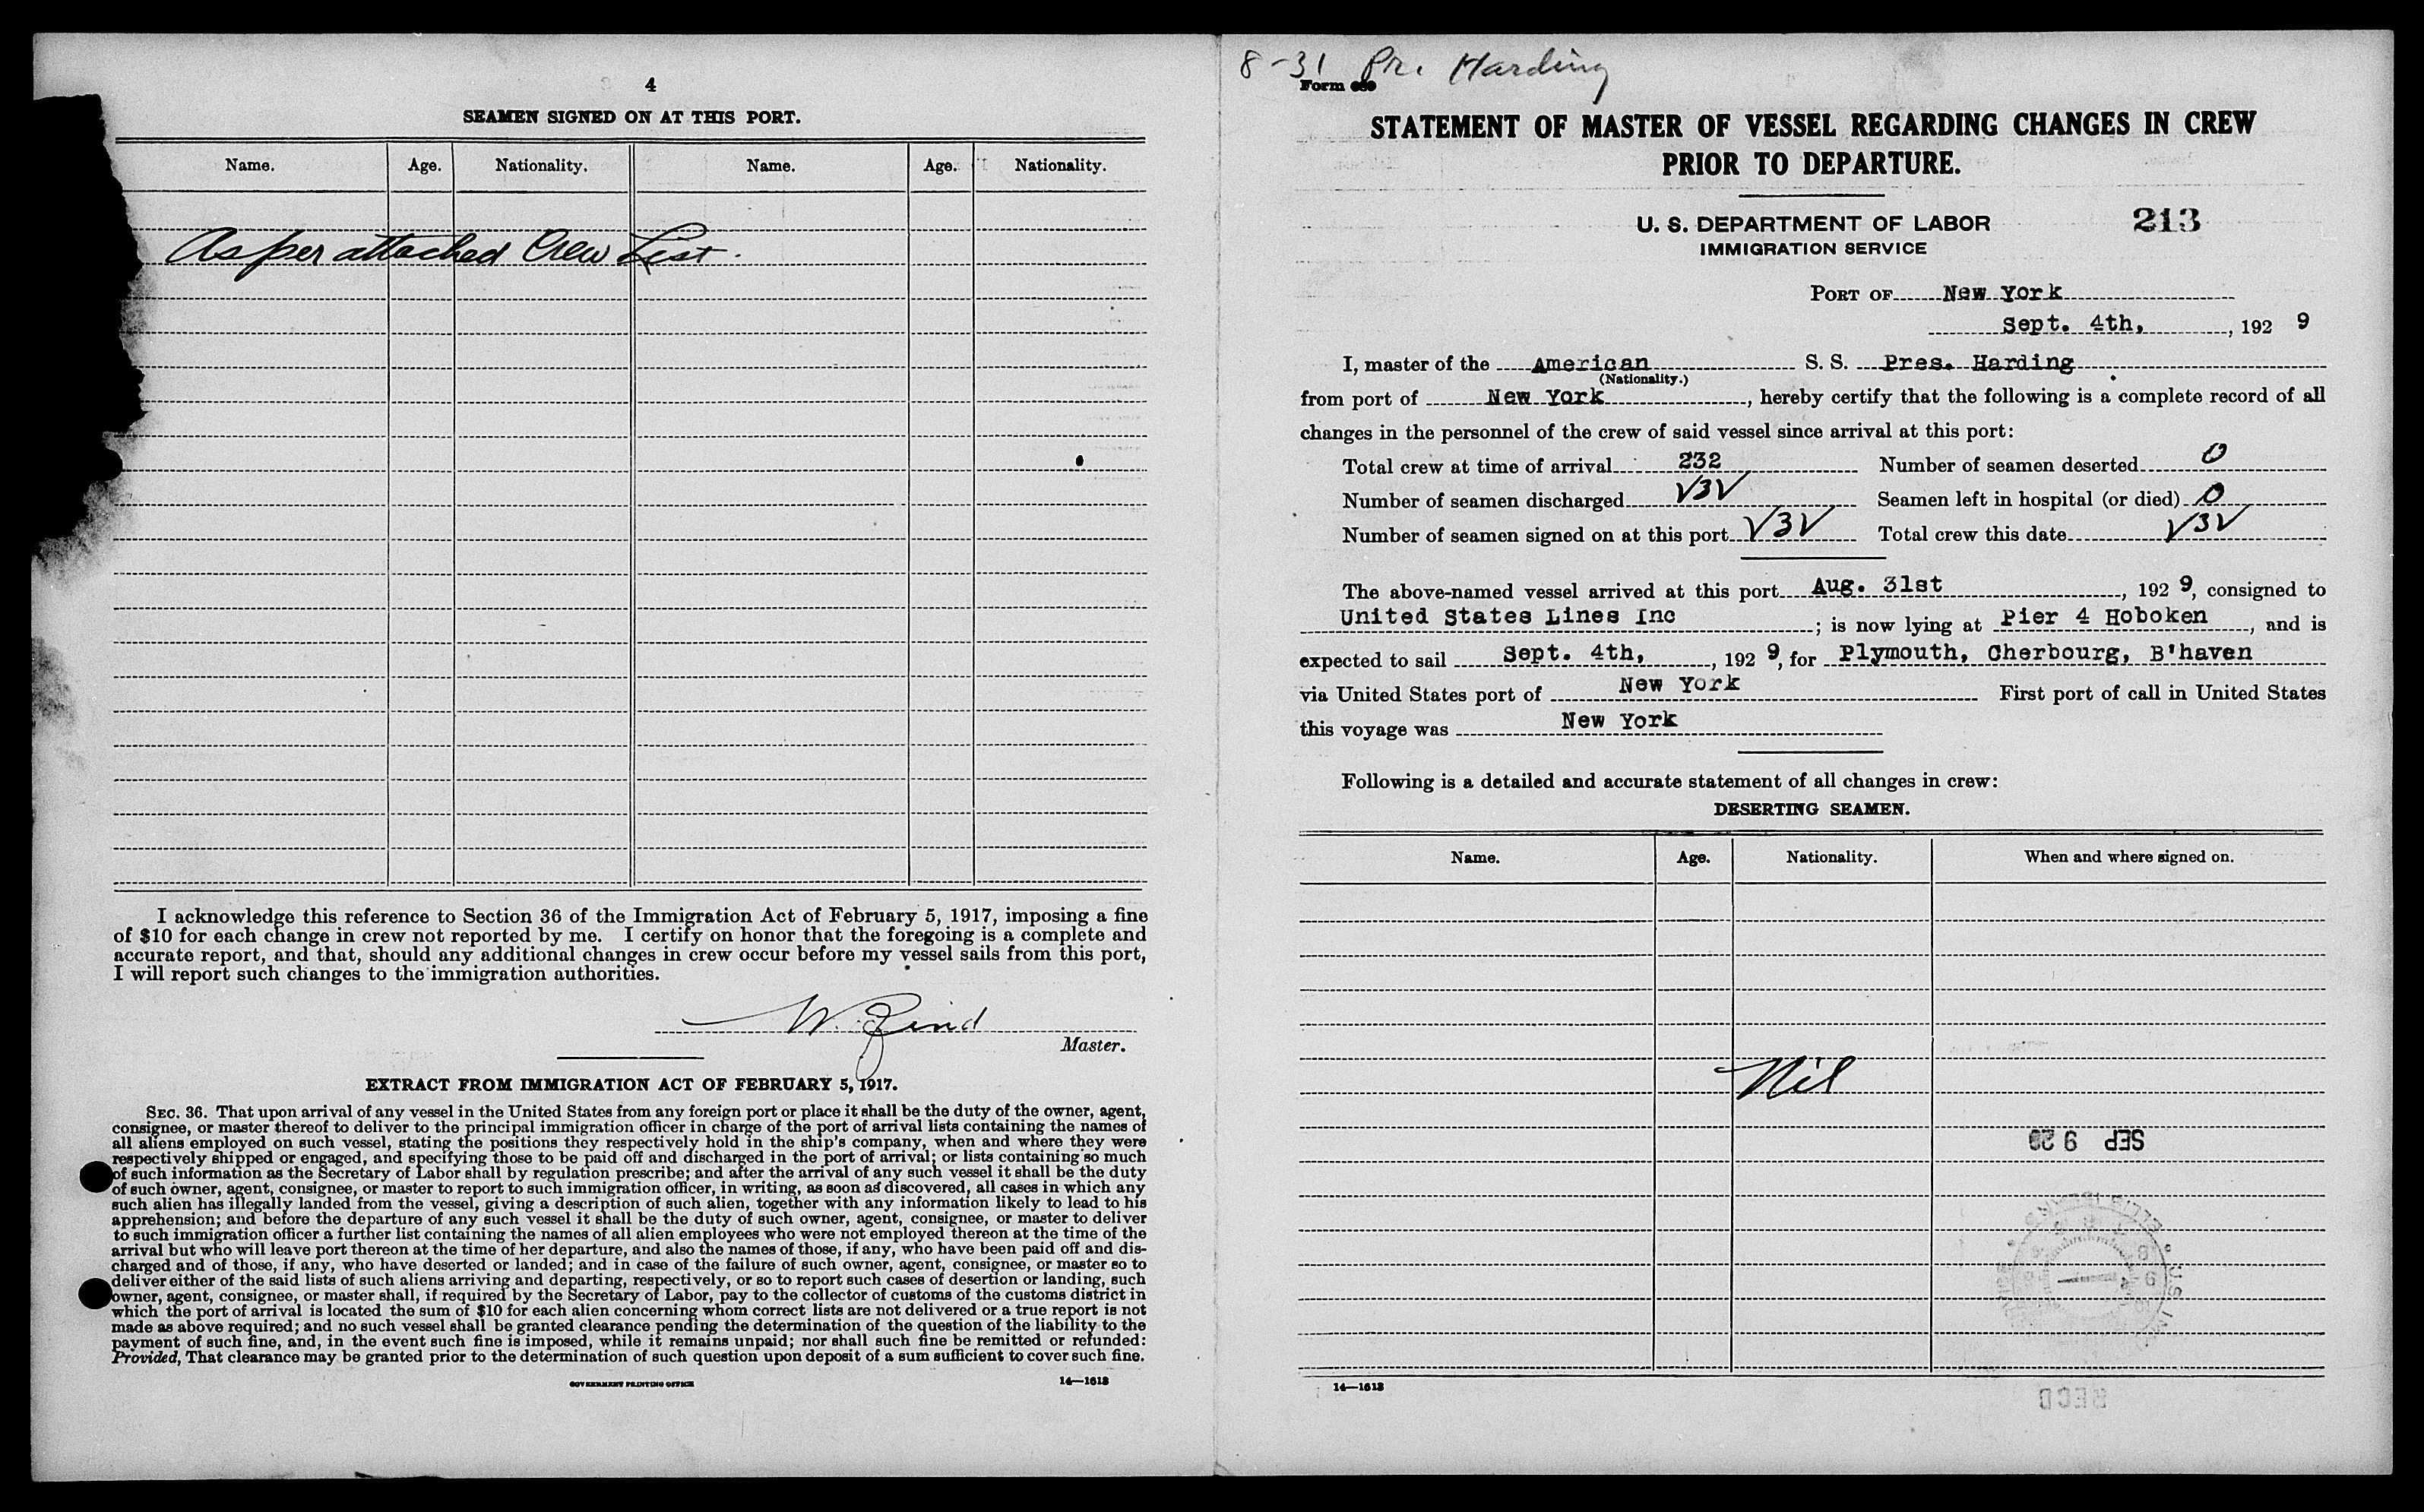 4
SEAMEN SIGNED ON AT THIS PORT.
Name. Age. Nationality. Name. Age. Nationality.
As per attached Crew List.
I acknowledge this reference to Section 36 of the Immigration Act of February 5, 1917, imposing a fine
of $10 for each change in crew not reported by me. I certify on honor that the foregoing is a complete and
accurate report, and that, should any additional changes in crew occur before my vessel sails from this port,
I will report such changes to the immigration authorities.
W.
Master.
EXTRACT FROM IMMIGRATION ACT OF FEBRUARY 5, 1917.
SEC. 36. That upon arrival of any vessel in the United States from any foreign port or place it shall be the duty of the owner, agent,
consignee, or master thereof to deliver to the principal immigration officer in charge of the port of arrival lists containing the names of
all aliens employed on such vessel, stating the positions they respectively hold in the ship's company, when and where they were
respectively shipped or engaged, and specifying those to be paid off and discharged in the port of arrival; or lists containing so much
of such information as the Secretary of Labor shall by regulation prescribe; and after the arrival of any such vessel it shall be the duty
of such owner, agent, consignee, or master to report to such immigration officer, in writing, as soon as discovered, all cases in which any
such alien has illegally landed from the vessel, giving a description of such alien, together with any information likely to lead to his
apprehension; and before the departure of any such vessel it shall be the duty of such owner, agent, consignee, or master to deliver
to such immigration officer a further list containing the names of all alien employees who were not employed thereon at the time of the
arrival but who will leave port thereon at the time of her departure, and also the names of those, if any, who have been paid off and dis-
charged and of those, if any, who have deserted or landed; and in case of the failure of such owner, agent, consignee, or master so to
deliver either of the said lists of such aliens arriving and departing, respectively, or so to report such cases of desertion or landing, such
owner, agent, consignee, or master shall, if required by the Secretary of Labor, pay to the collector of customs of the customs district in
which the port of arrival is located the sum of $10 for each alien concerning whom correct lists are not delivered or a true report is not
made as above required; and no such vessel shall be granted clearance pending the determination of the question of the liability to the
payment of such fine, and, in the event such fine is imposed, while it remains unpaid; nor shall such fine be remitted or refunded:
Provided, That clearance may be granted prior to the determination of such question upon deposit of a sum sufficient to cover such fine.
GOVERNMENT PRINTING OFFICE 14—1613
8-31 Harding
Form
STATEMENT OF MASTER OF VESSEL REGARDING CHANGES IN CREW
PRIOR TO DEPARTURE.
U. S. DEPARTMENT OF LABOR 213
IMMIGRATION SERVICE
PORT OF New York
Sept. 4th, , 192 9
I, master of the American S. S. Pres. Harding
(Nationality.)
from port of New York , hereby certify that the following is a complete record of all
changes in the personnel of the crew of said vessel since arrival at this port:
Total crew at time of arrival 232 Number of seamen deserted 0
Number of seamen discharged 232 Seamen left in hospital (or died) 0
Number of seamen signed on at this port 232 Total crew this date 232
The above-named vessel arrived at this port Aug. 31st , 192 9, consigned to
United States Lines Inc ; is now lying at Pier 4 Hoboken , and is
expected to sail Sept. 4th, , 192 9, for Plymouth, Cherbourg, B'haven
via United States port of New York First port of call in United States
this voyage was New York
Following is a detailed and accurate statement of all changes in crew:
DESERTING SEAMEN.
Name. Age. Nationality. When and where signed on.
Nil
SEP 9 29
RECD
14—1613